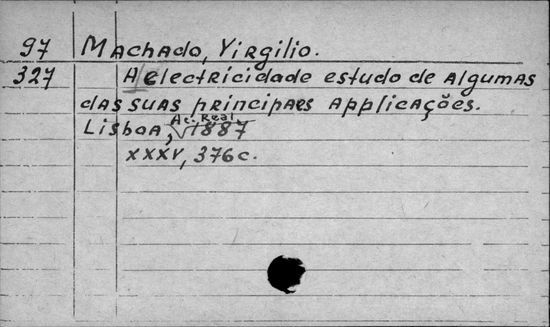 97 Machado, Virgilio.
327 A electricidade estudo de algumas
das suas principaes applicações.
Lisboa, Ac. Real, 1887
XXXV, 376 c.